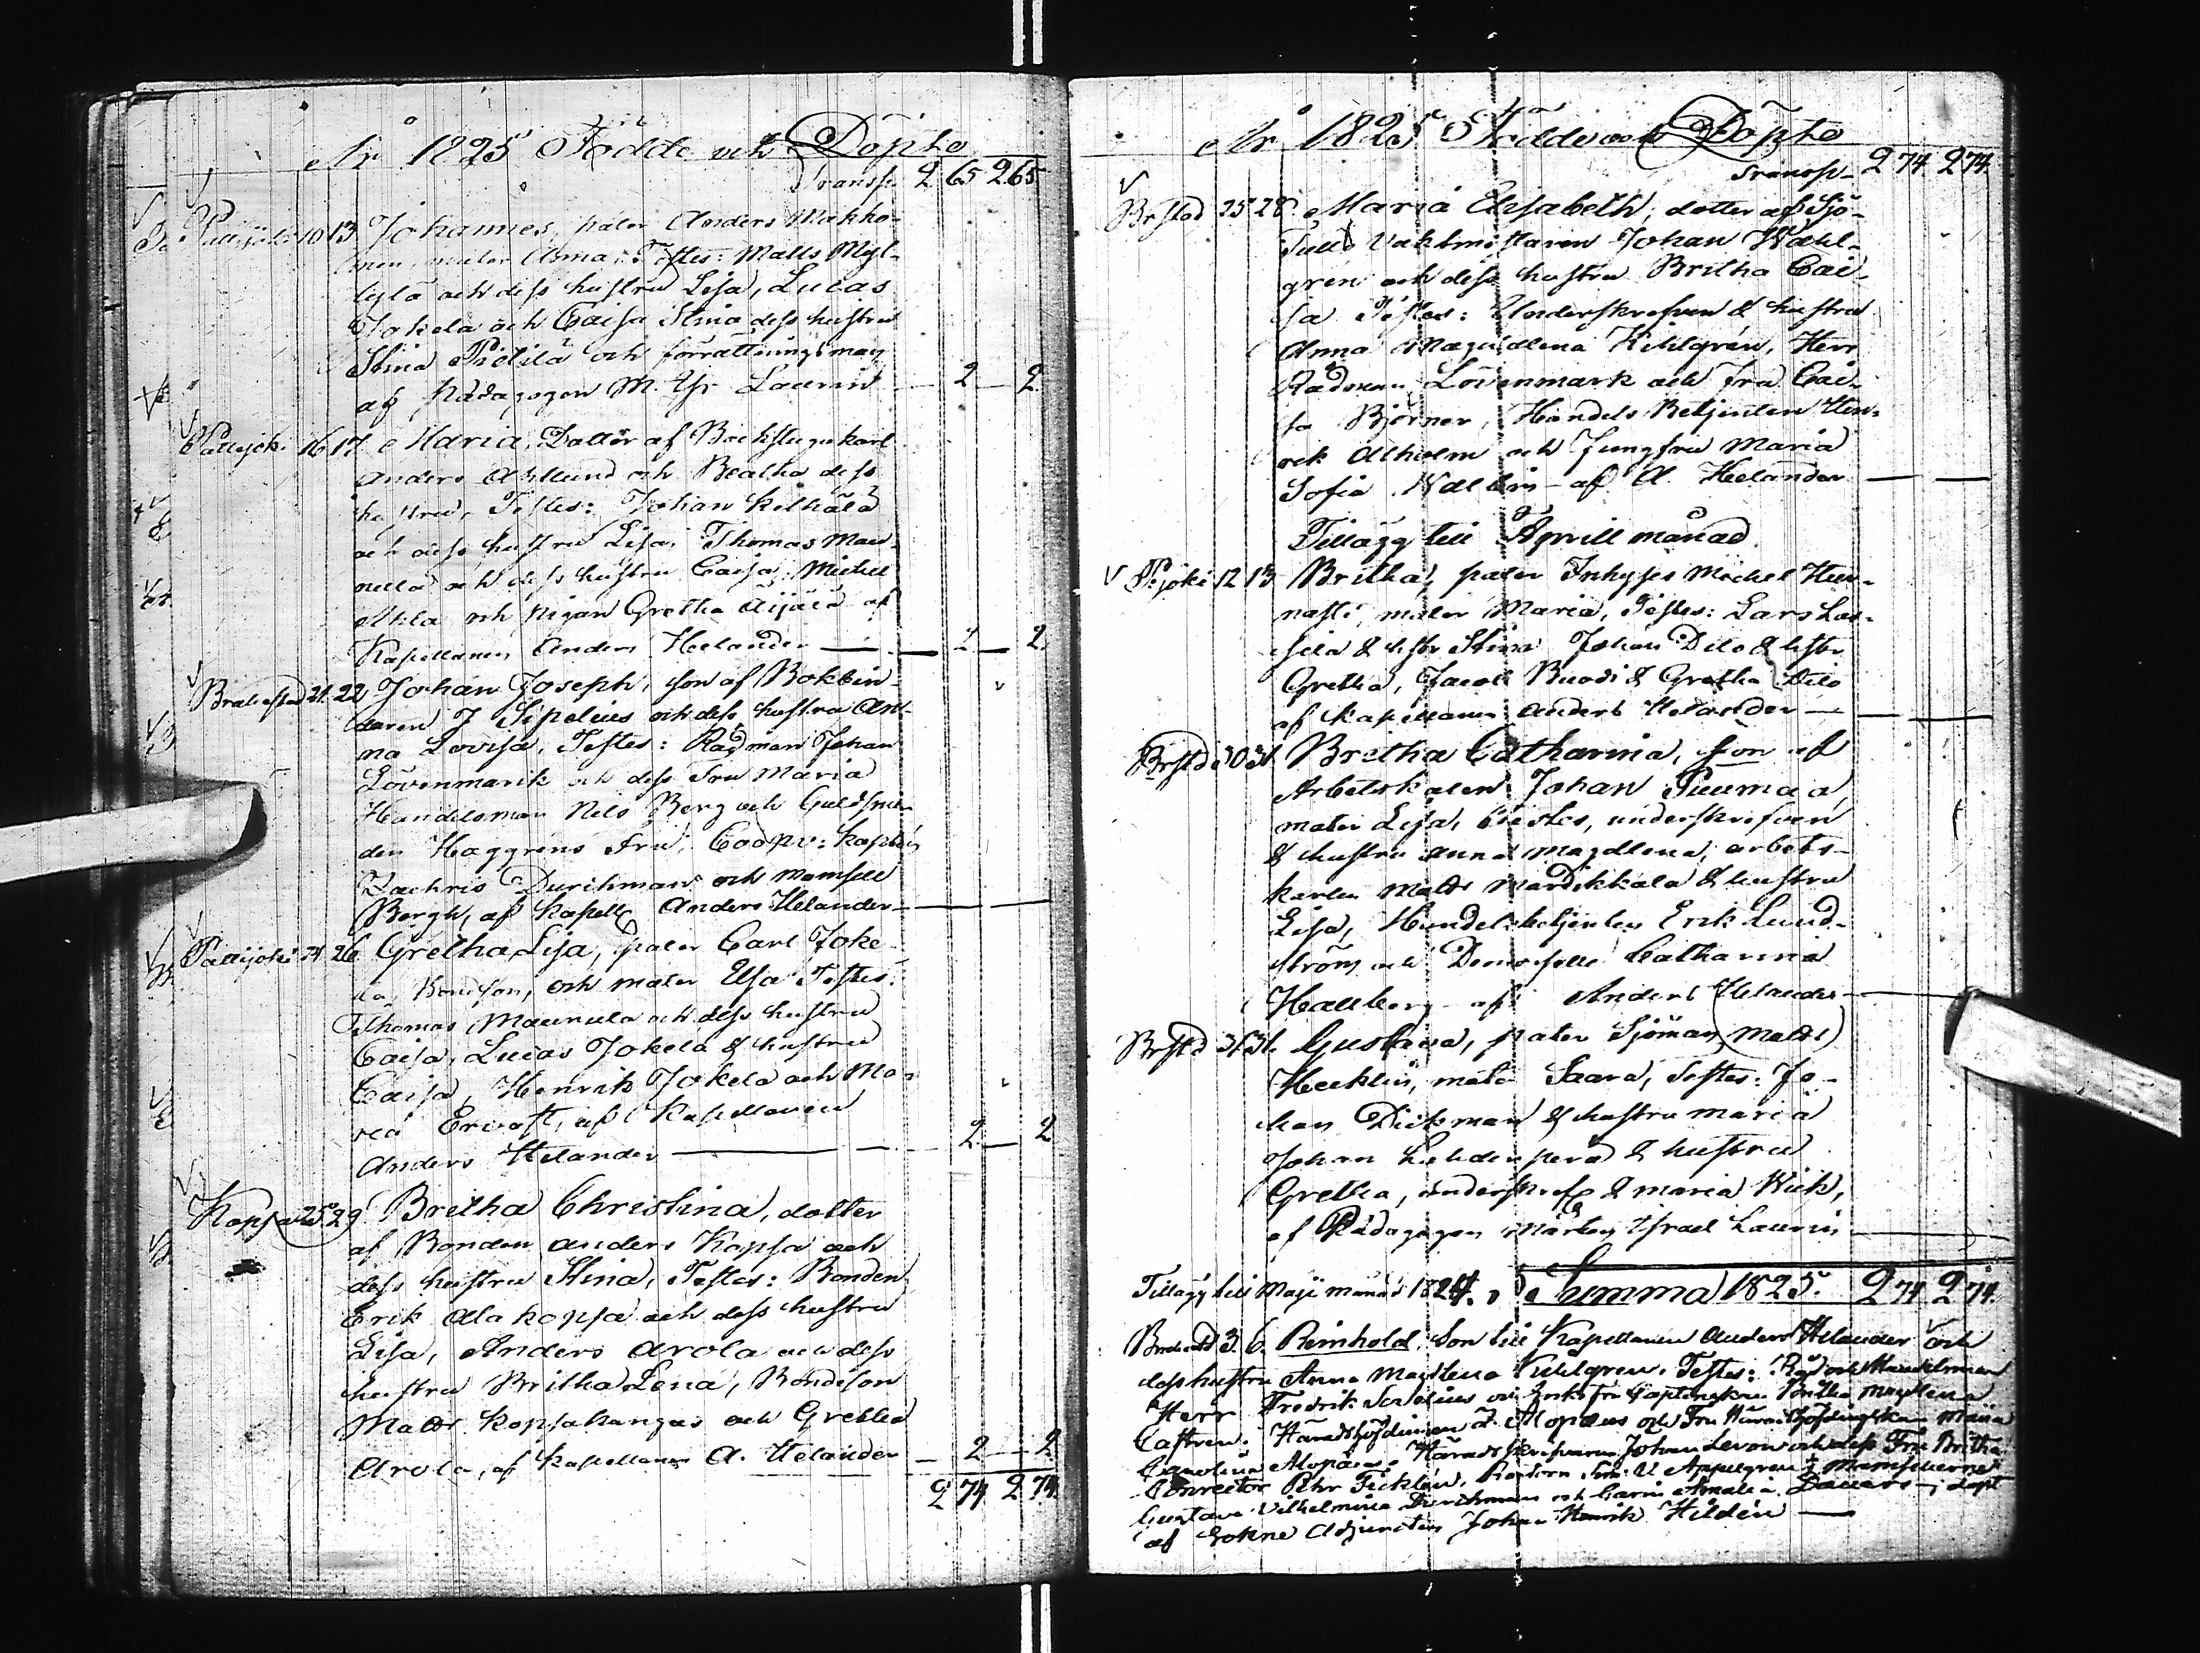 År 1825 Födde och Döpte
Transp. 2 65 2 65
Pattijoki 10 13 Johannes, pater Anders Makko-
nen, mater Anna, Testes: Matts Myl-
lylä och dess hustru Lisa, Lucas
Jokela och Caisa Stina dess hustru
Stina Pietilä och förrättningsman
af Pädagogen M. Isr. Laurin — 2 — 2
Pattijoki 16 17 Maria, Dotter af Backstugukarl
Anders Ahllund och Beatha dess
hustru, Testes: Johan Kelhälä
och dess hustru Lisa, Thomas Mau-
nula och dess hustru Caisa, Michel
och Pigan Gretha Äijälä af
Kapellanen Anders Helander — 2 — 2
Brahestad 21. 22 Johan Joseph, son af Bokbin-
daren J Sipelius och dess hustru An-
na Lovisa, Testes: Rådman Johan
Lövenmark och dess Fru Maria
Handelsman Nils Berg och Guldsme-
den Häggrens Fru, Coopv: Kapten
Zachris Durchman och mamsell
Bergh, af Kapell Anders Helander —
Pattijoki 24 26 Gretha Lisa, pater Carl Joke-
la, Bondson, och mater Elsa Testes:
Thomas Maunula och dess hustru
Caisa, Lucas Jokela & hustru
Caisa, Henrik Jokela och Ma-
ria Ervast, af Kapellanen
Anders Helander — 2 — 2
Kopsa 25 29 Britha Christina, dotter
af Bonden Anders Kopsa och
dess hustru Stina, Testes: Bonden
Erik Alakopsa och dess hustru
Lisa, Anders Arola och dess
hustru Britha Lena, Bondeson
Matts Kopsakangas och Gretha
Arola, af Kapellanen A. Helander — 2 — 2
2 74 2 74.
År 1825 Födde och Döpte
Transp — 2 74. 2 74.
Brstad 25 28. Maria Elisabeth, dotter af Sjö-
Tull Vaktmästaren Johan Wahl-
gren och dess hustru Britha Cai-
sa Testes: Underskrefven & hustru
Anna Magdalena Kihlgrén, Herr
Rådman Lövenmark och Fru Cai-
sa Björner, Handels Betjenten Hen-
rik Alholm och Jungfru Maria
Sofia — af A. Helander —
Tillägg till Aprill månad
Pjoki 12 13 Britha, pater Inhyses Michel Hur-
nasti, mater Maria, Testes: Lars Las-
sila & hstr Stina Johan Dilo & hstr
Gretha, Jacob Ruodi & Gretha Dilo
af Kapellanen Anders Helander —
Brstd 30 31 Bretha Catharina, son af
Arbetskalen Johan Puumaa,
mater Lisa, Testes, underskrifven
& hustru Anna Magdlena, arbets-
karlen Matts Mardikkala & hustru
Lisa, Handelsbetjenten Erik Lund-
ström och Demoiselle Catharina
Hallberg af Anders Helander —
Brstd 31 31. Gustava, pater Sjöman Matts
Hecklin, mater Saara, Testes: Jo-
han Dickman & hustru Maria
Johan Lehdenperä & hustru
Gretha, underskrefv & Maria Wick,
af Pädagogen Mårten Israel Laurin —
Tillägg till Maji månad 1824. Summa 1825. 2 74 2 74.
Brahestd 3. 6. Reinhold, Son till Kapellanen Anders Helander och
dess hustru Anna Magdlena Kihlgren. Testes: Råd och Handelsman
Herr Fredrik Sovelius och Enkefru Captenskan Britha Magdlena
Castren, Häradshöfdingen Z. Alopæus och Fru Häradshöfdingskan Maria
Carolina Alopæus, Häradsskrifvaren Johan Levon och dess Fru Britha
Conrector Pehr Ticklén, V. Appelgren, Mamsellerne
Gustava Vilhelmina Durchman och Carin Amalia Danars, döpt
af Sokne Adjuncten Johan Henrik Hildén —